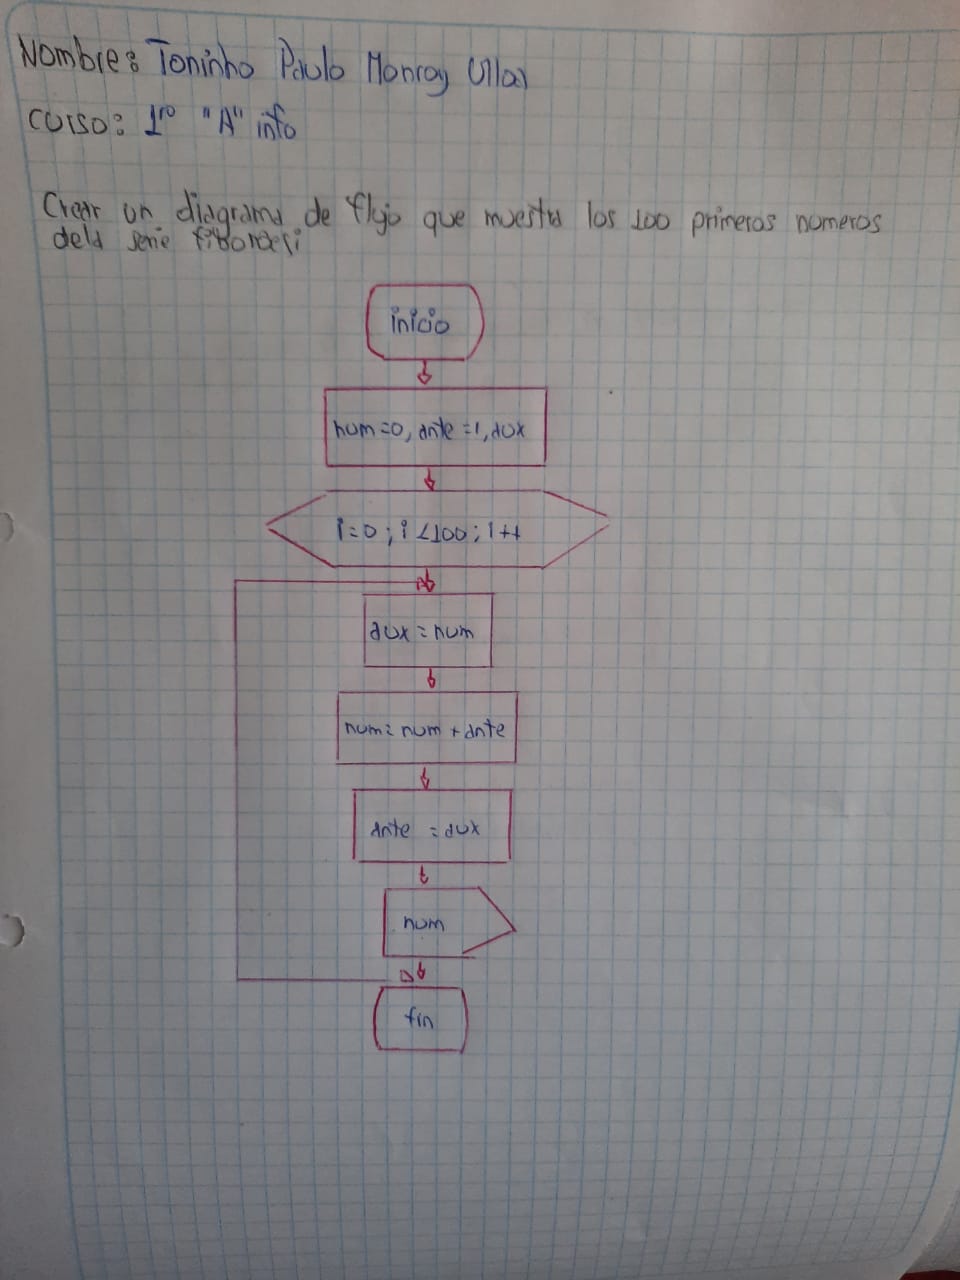 Nombre: Toninho Paulo Monroy Ulloa
curso: 1ro "A" info
Crear un diagrama de flujo que muestra los 100 primeros numeros
dela serie fibonaesi
inicio
num=0, ante=1, aux
i=0; i<100; i++
aux=num
num=num+ante
ante=aux
num
fin